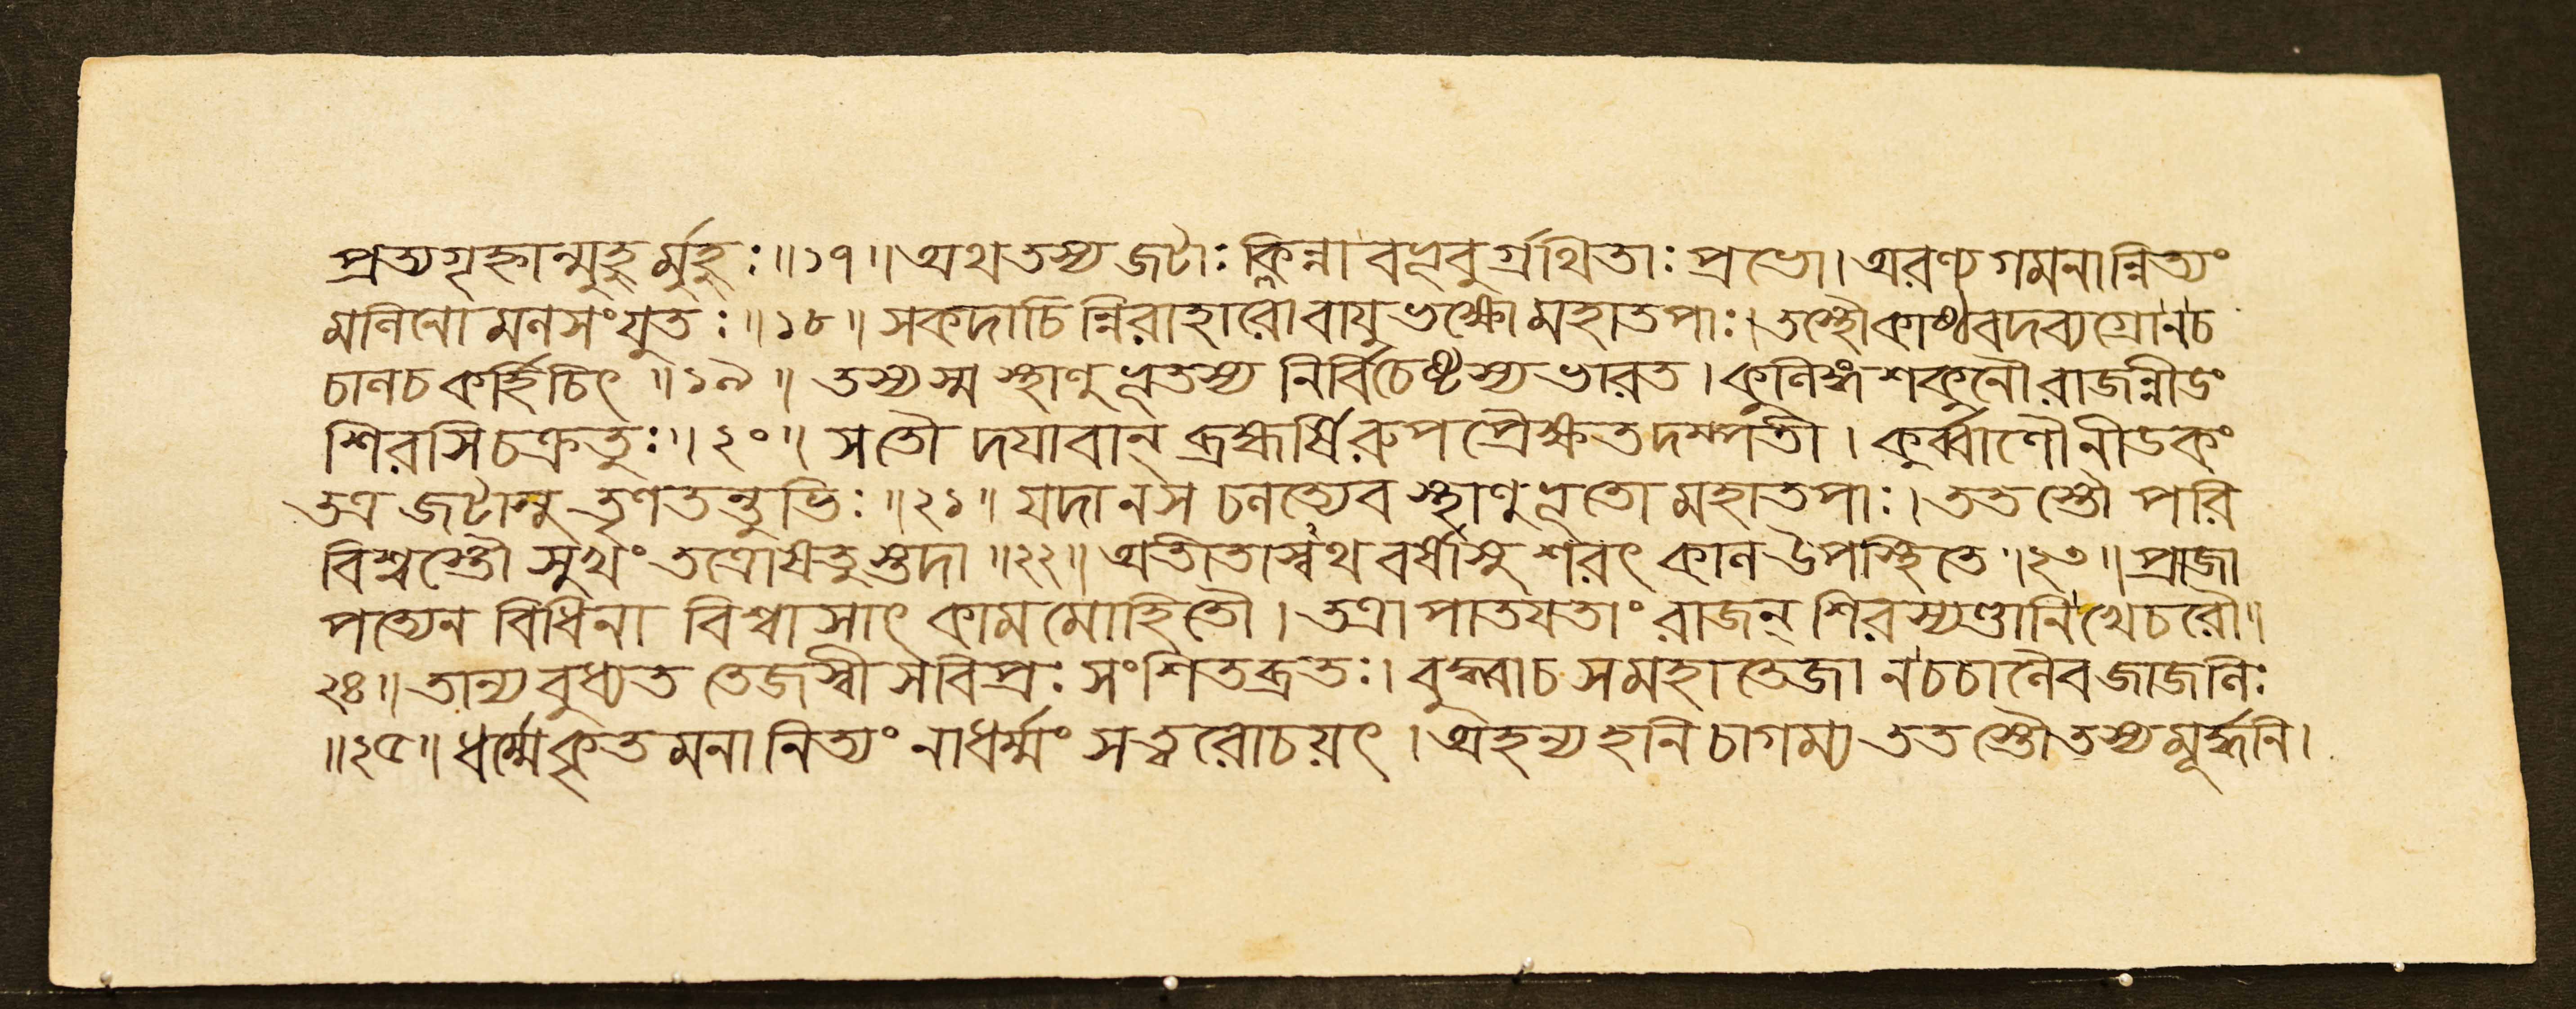 প্রত্যগৃহ্নান্মুহুর্মুহুঃ॥১৭॥অথতস্যজটাঃক্লিন্নাবভূবুর্গ্রথিতাঃপ্রভো।অরণ্যগমনান্নিত্যং
মলিনোমলসংযুতঃ॥১৮॥সকদাচিন্নিরাহারোবাযুভক্ষোমহাতপাঃ।তস্থৌকাষ্ঠবদব্যগ্রোনচ
চালচকর্হিচিৎ॥১৯॥তস্যস্মস্থাণুভূতস্যনির্বিচেষ্টস্যভারত।কুলিঙ্গশকুনৌরাজন্নীডং
শিরসিচক্রতুঃ॥২০॥সতৌদযাবান্ব্রহ্মর্ষিরুপপ্রৈক্ষতদম্পতী।কুর্ব্বাণৌনীডকং
তত্রজটাসুতৃণতন্তুভিঃ॥২১॥যদানসচলত্যেবস্থাণুভূতোমহাতপাঃ।ততস্তৌপরি
বিশ্বস্তৌসুখংতত্রোষতুস্তদা॥২২॥অতীতাস্বথবর্ষাসুশরৎকালউপস্থিতে॥২৩॥প্রাজা
পত্যেনবিধিনাবিশ্বাসাৎকামমোহিতৌ।তত্রাপাতযতাংরাজন্শিরস্যণ্ডানিখেচরৌ॥
২৪॥তান্যবুধ্যততেজস্বীসবিপ্রঃসংশিতব্রতঃ।বুদ্ধ্বাচসমহাতেজানচচালৈবজাজলিঃ
॥২৫॥ধর্ম্মেকৃতমনানিত্যংনাধর্ম্মংসত্বরোচয়ৎ।অহন্যহনিচাগম্যততস্তৌতস্যমূর্দ্ধনি।